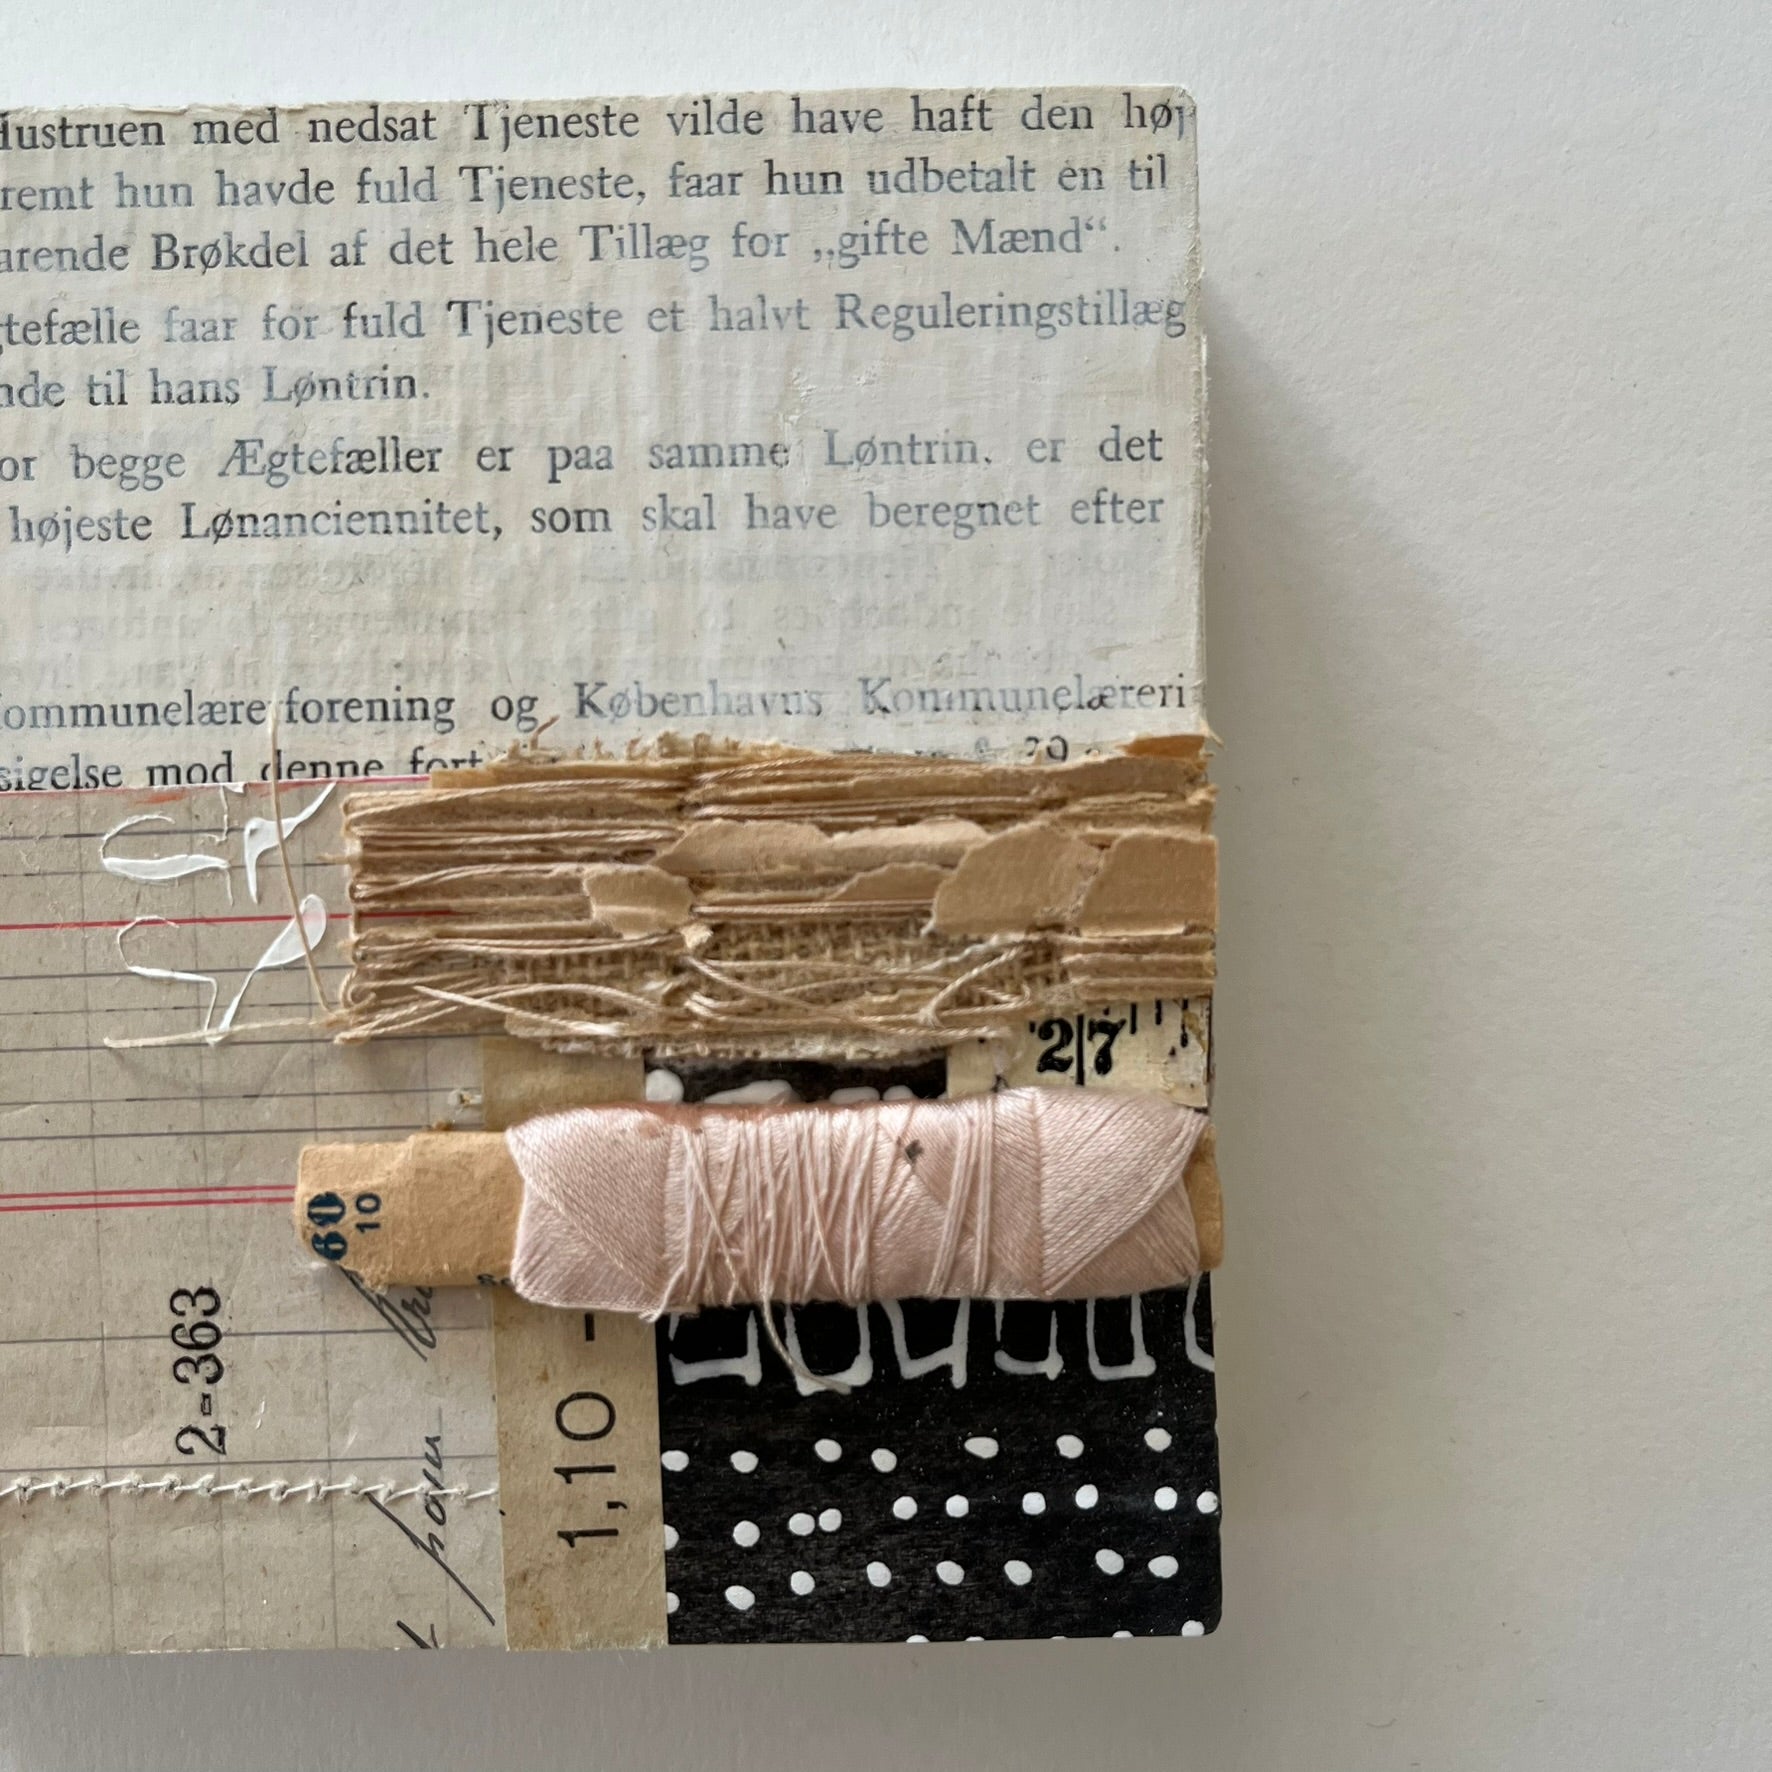 Hustruen med nedsat Tjeneste vilde have haft den høj
remt hun havde fuld Tjeneste, faar hun udbetalt en til
arende Brøkdel af det hele Tillæg for „gifte Mænd“.
gtefælle faar for fuld Tjeneste et halvt Reguleringstillæg
nde til hans Løntrin.
or begge Ægtefæller er paa samme Løntrin, er det
højeste Lønanciennitet, som skal have beregnet efter
Kommunelærerforening og Københavns Kommunelæreri
sigelse mod denne fort
2|7
60
10
2-363
1,10 -